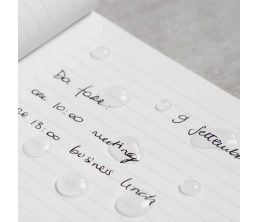 Da fare
9 Settembre
ore 10:00 meeting
ore 13:00 business lunch